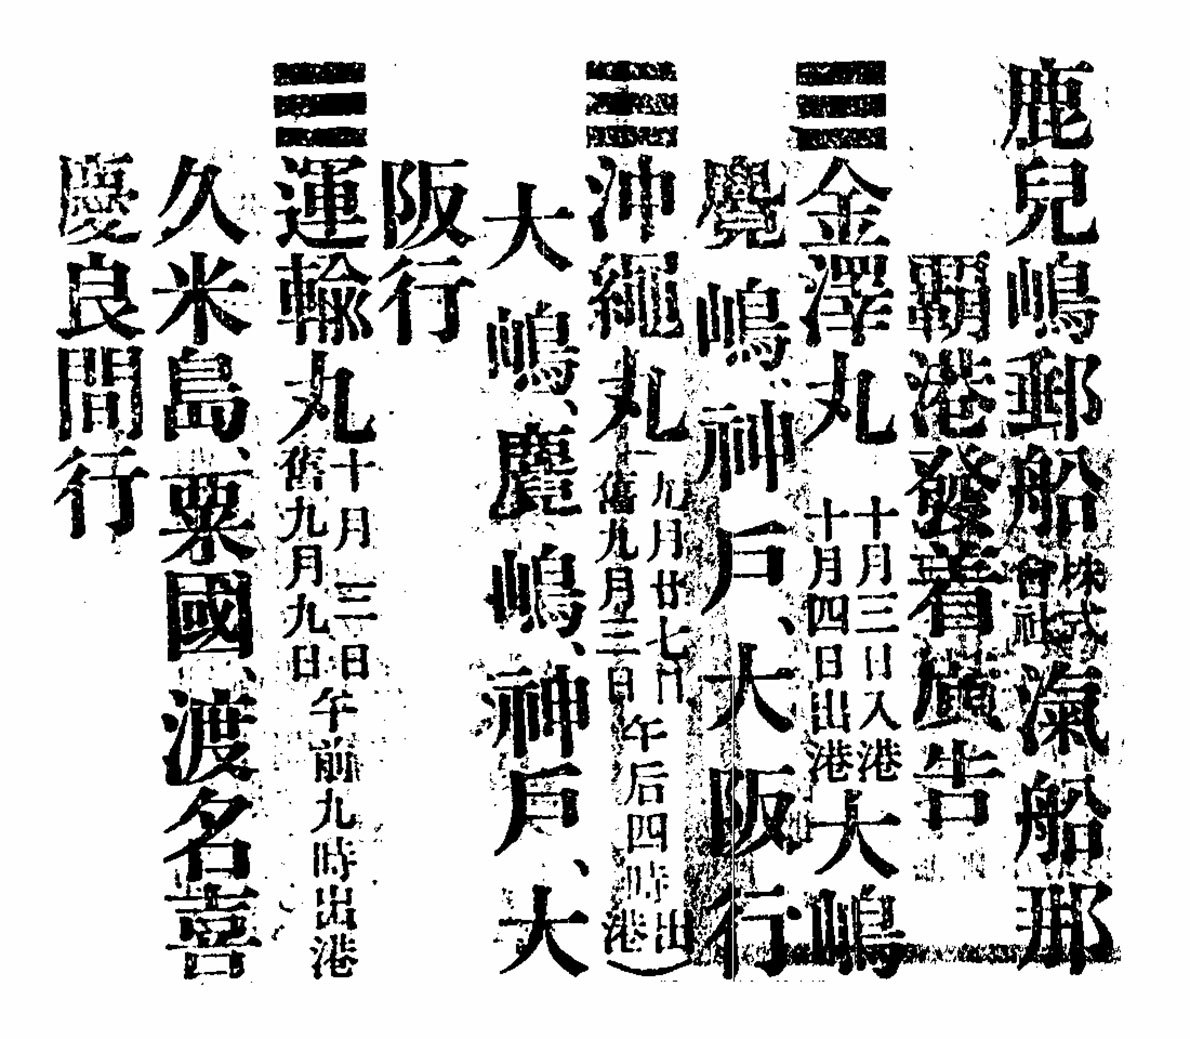 鹿兒嶋郵船株式會社滊船那
覇港發着廣告
☰金澤丸十月三日入港十月四日出港大嶋
麑嶋、神戶、大阪行
☰沖繩丸九月廿七日舊九月三日午后四時出港
大嶋、麑嶋、神戶、大
阪行
☰運輸丸十月三日舊九月九日午前九時出港
久米島、粟國、渡名喜
慶良間行